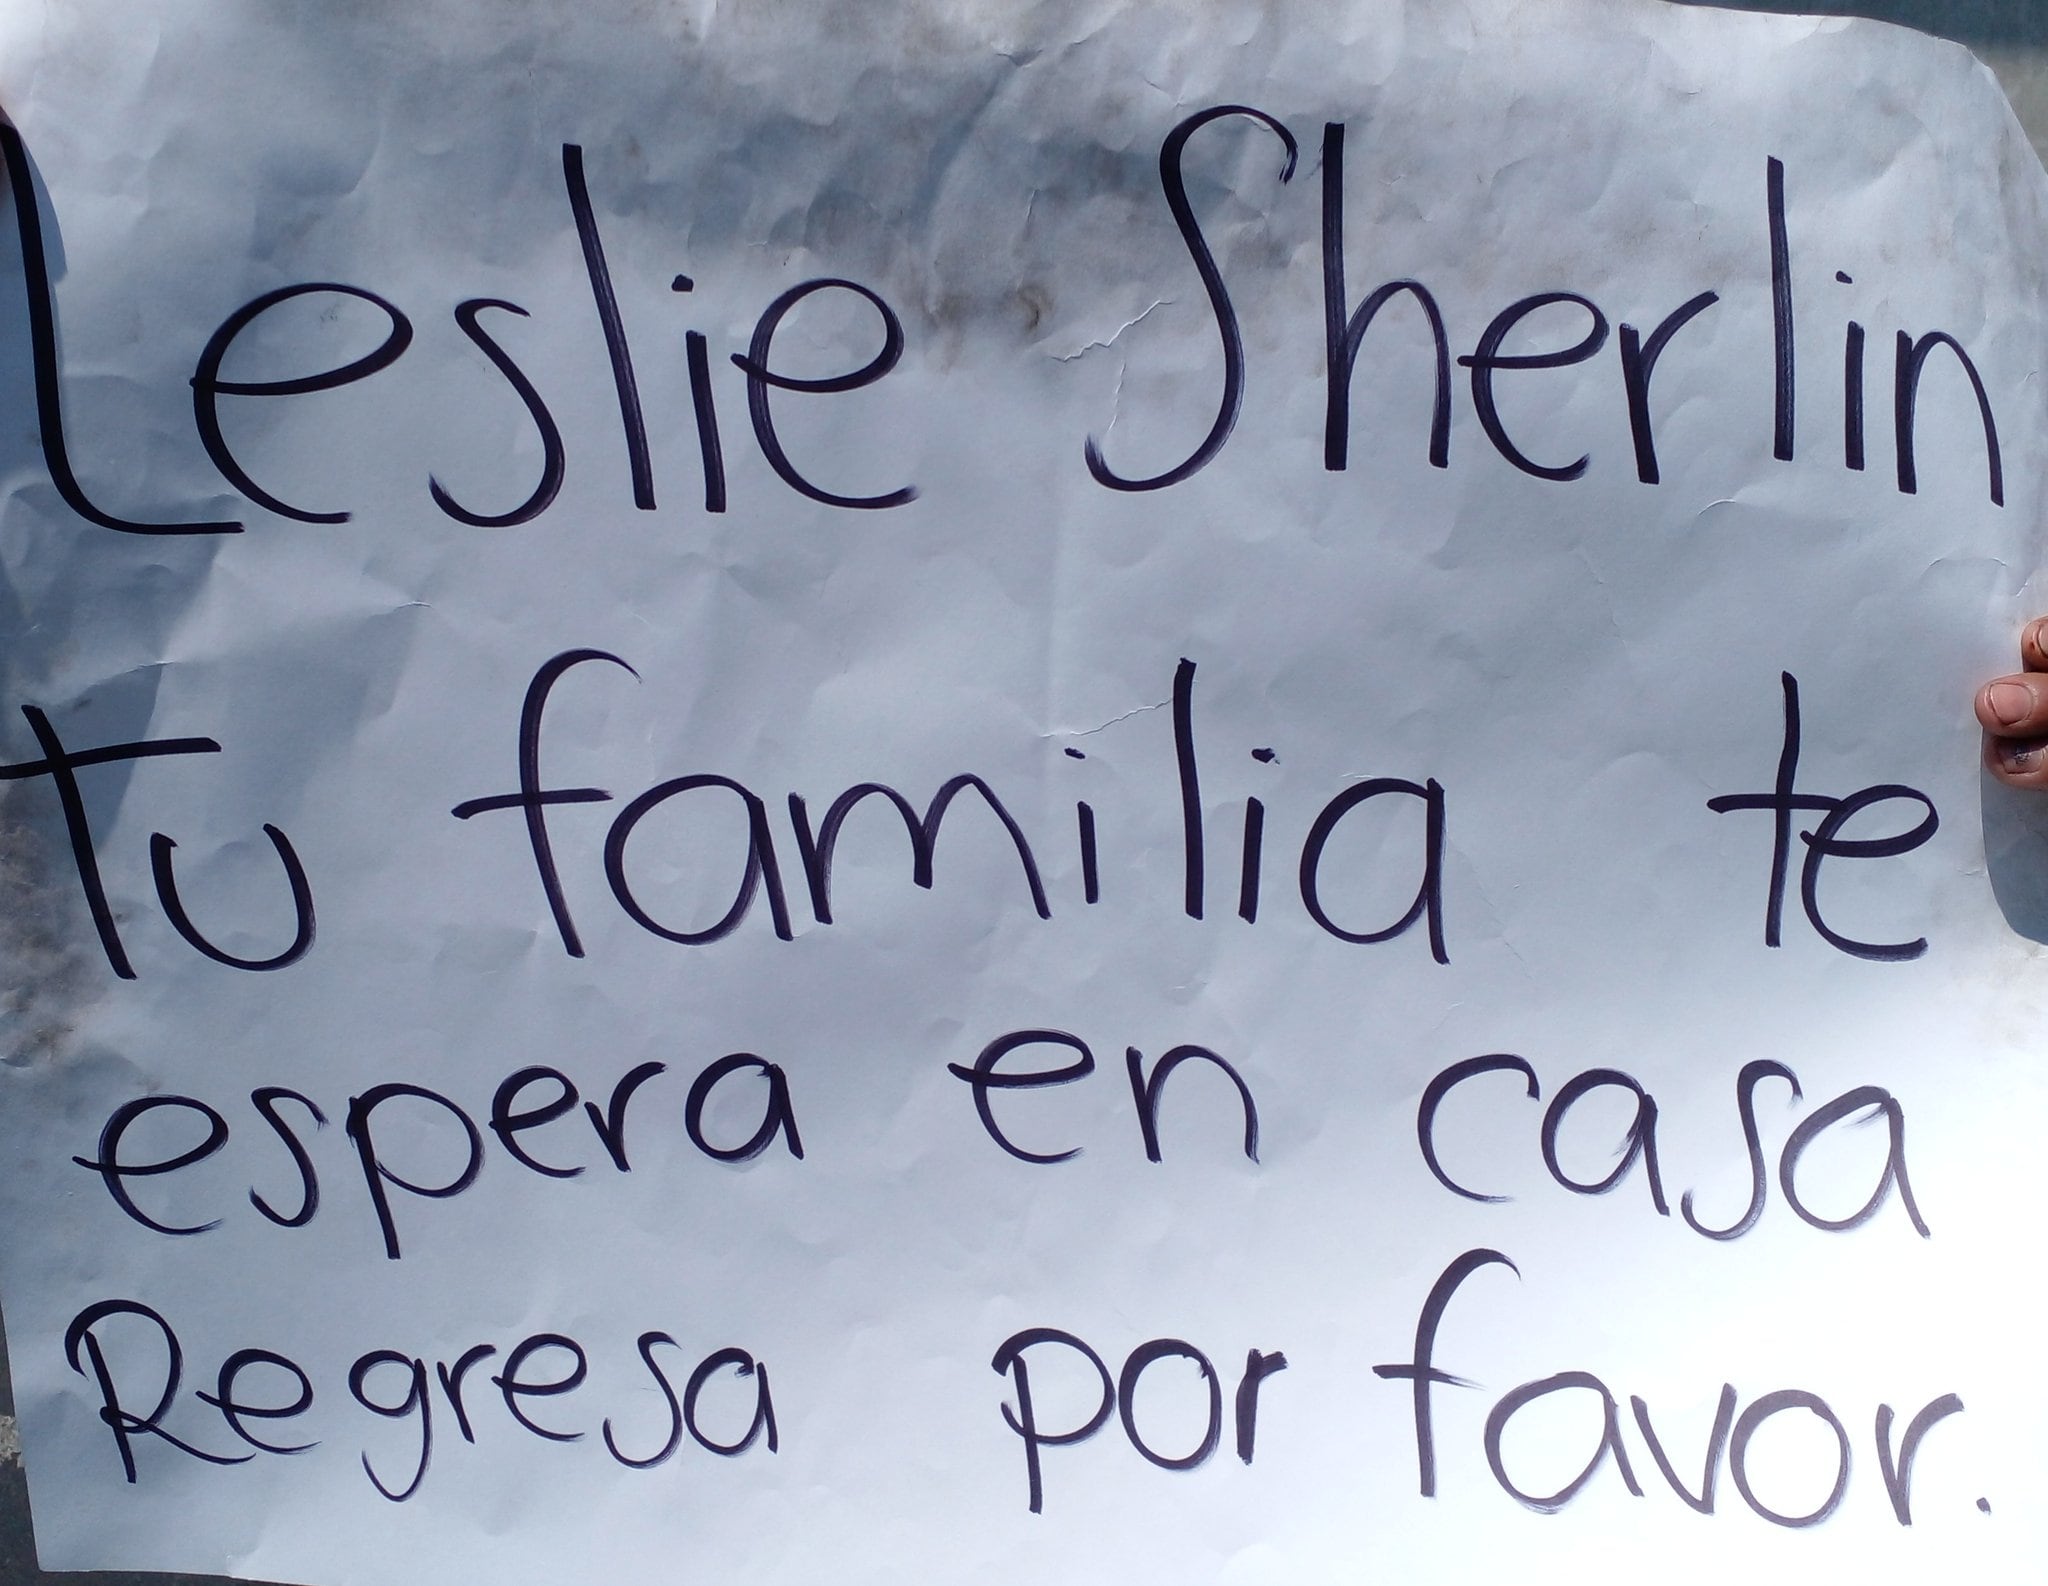 Leslie Sherlin
Tu familia te
espera en casa
Regresa por favor.